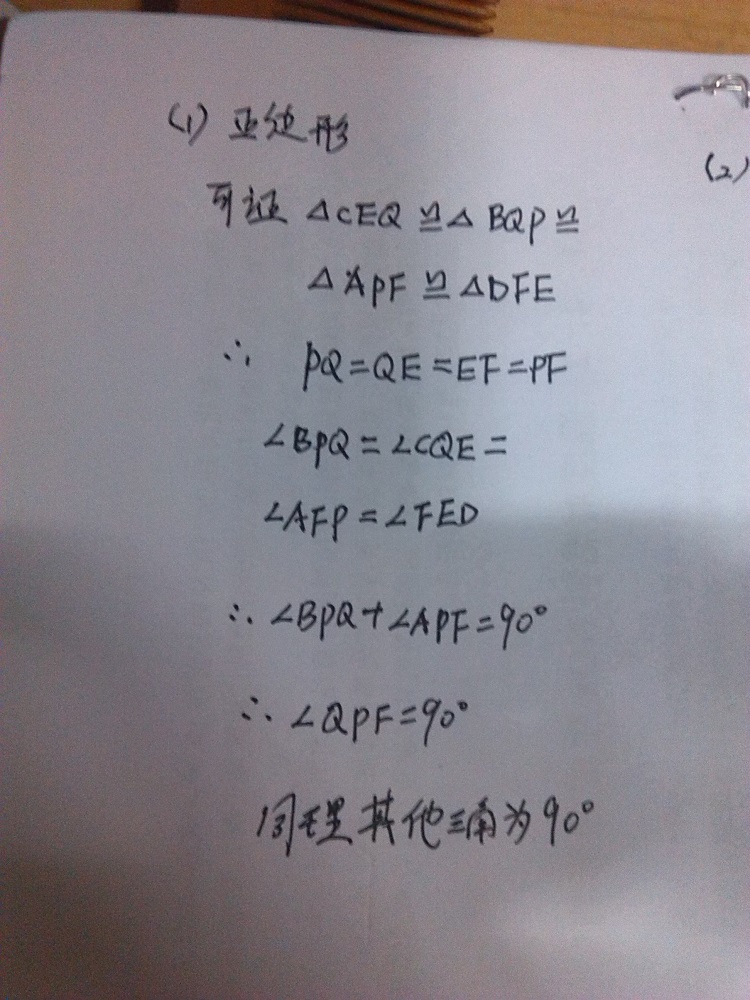 (1) 正边形
可证 △CEQ ≌ △BQP ≌
△APF ≌ △DFE
∴ PQ=QE=EF=PF
∠BPQ=∠CQE=
∠AFP=∠FED
∴ ∠BPQ+∠APF=90°
∴ ∠QPF=90°
同理其他三角为90°
(2)